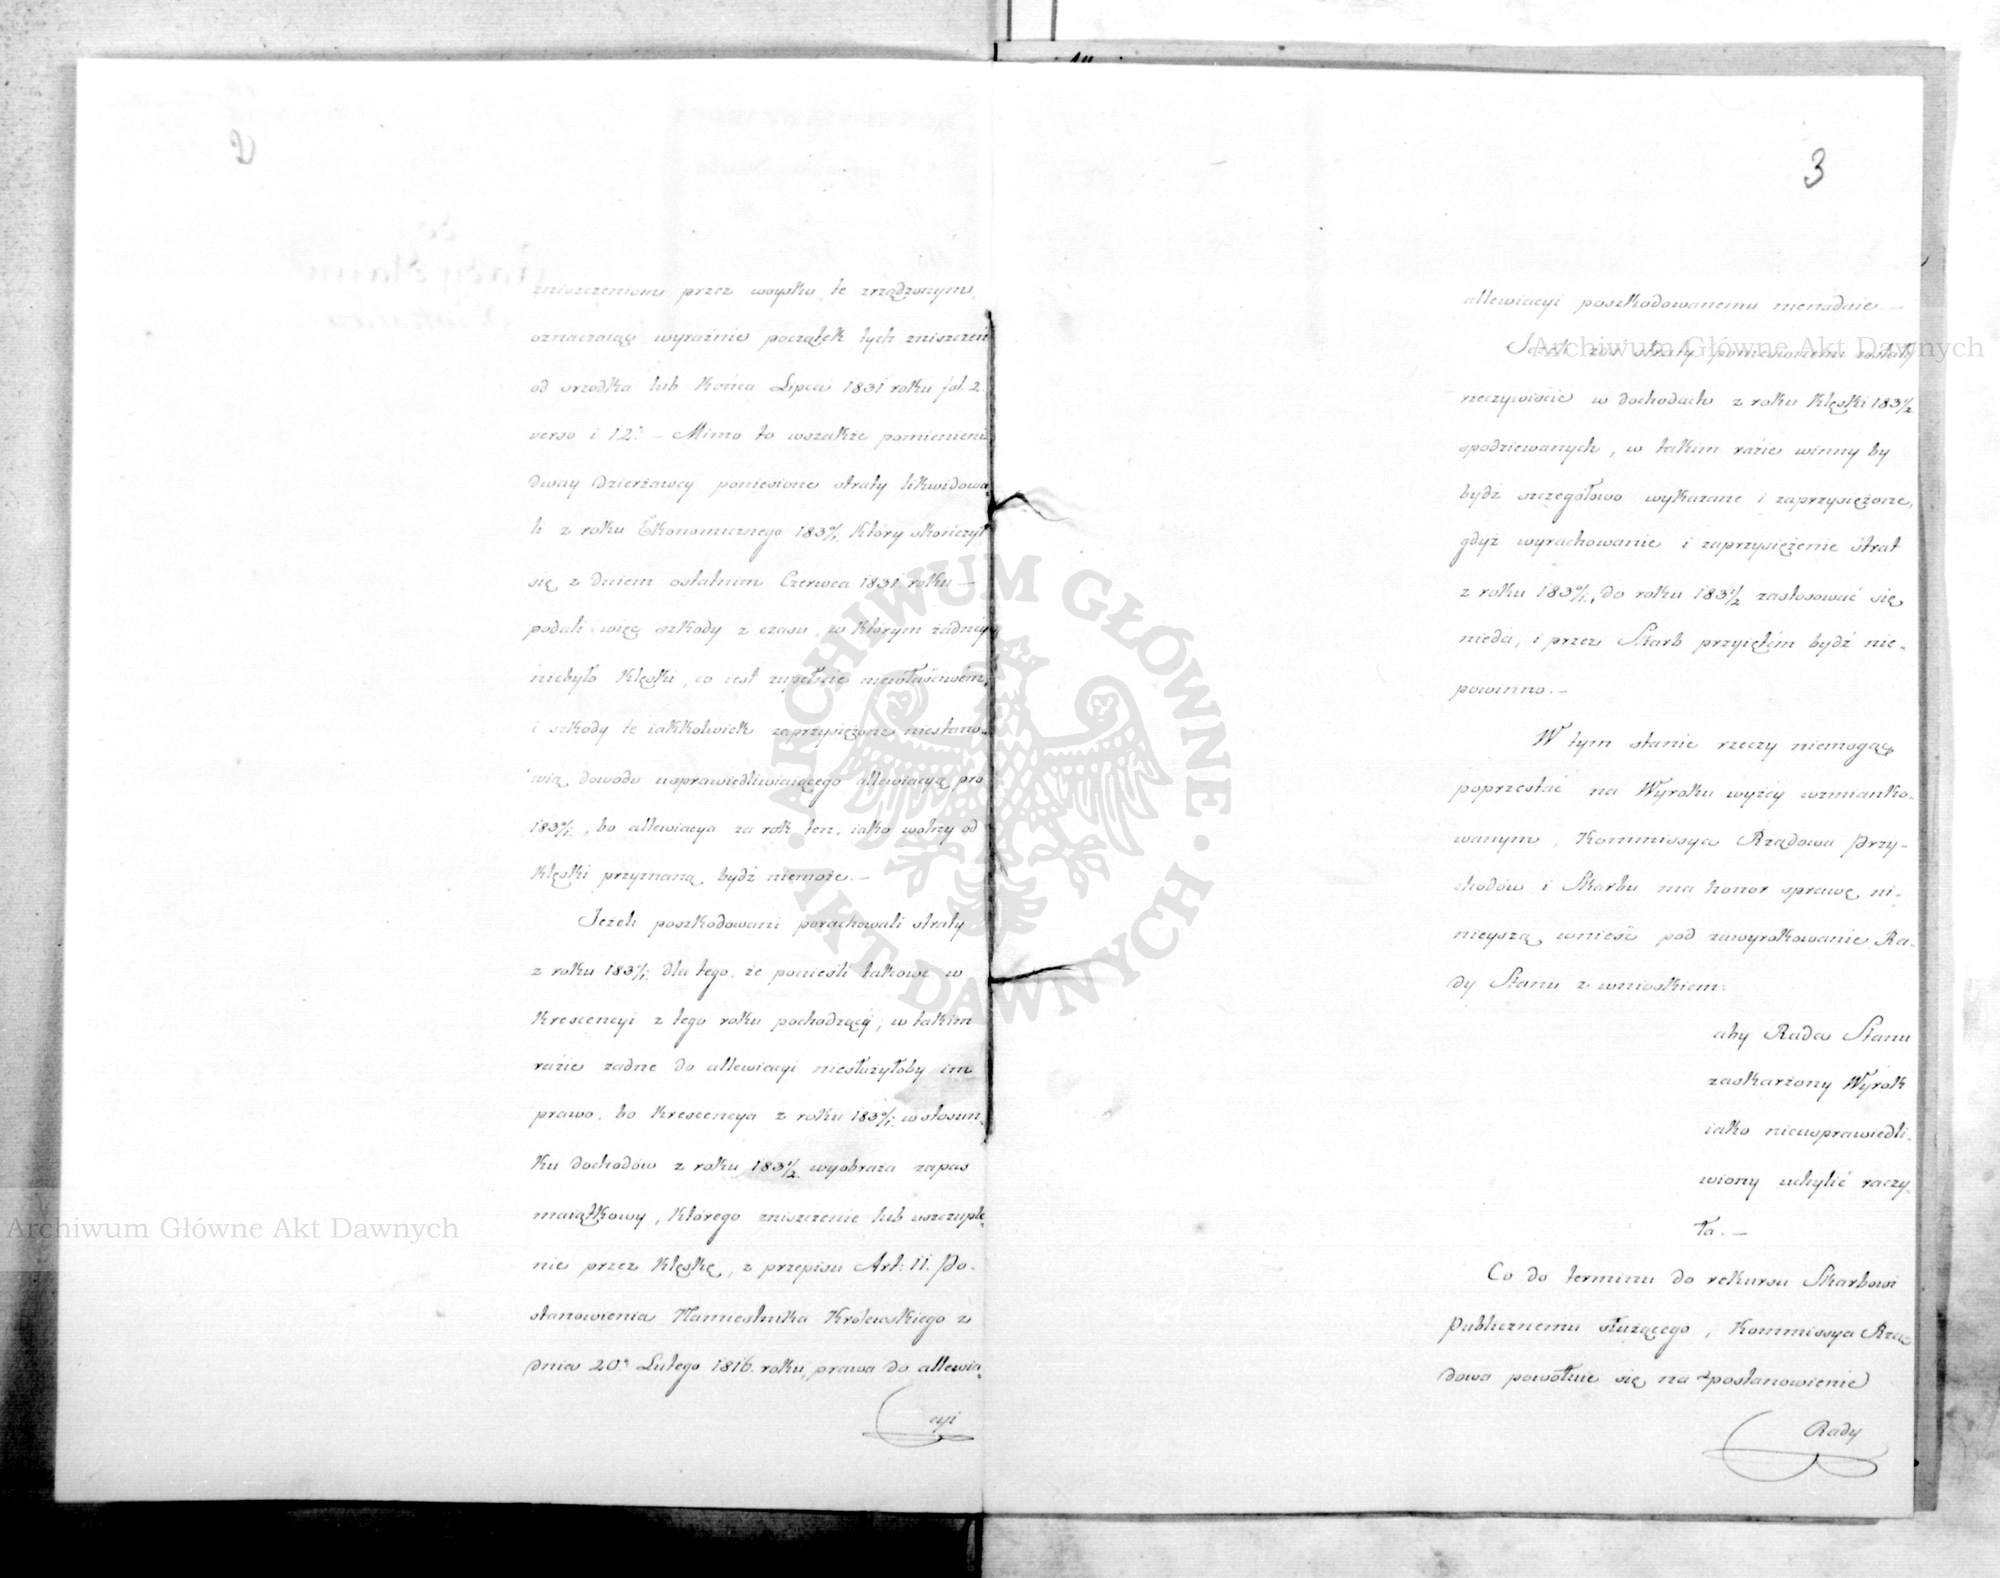 2
zniszczeniom przez woysku te zrządzonym,
oznaczaiąc wyraźnie początek tych zniszczeń
od srzodka lub Końca Lipca 1831. roku fol. 2.
verso i 12. – Mimo to wszakże pomienieni
dway Dzierżawcy poniesione straty likwidowa
li z roku Ekonomicznego 183⁰/₁. Który skończył
się z dniem ostatnim Czerwca 1831. roku –
podali więc szkody z czasu, w którym żadnéy
niebyło Klęski, co iest zupełnie niewłaściwém,
i szkody te iakkolwiek zaprzysiężone niestano-
wią dowodu usprawiedliwiaiącego allewiacyą pro
183⁰/₁., bo allewiacya za rok ten, iako wolny od
Klęski przyznaną bydź niemoże. –
Jeżeli poszkodowani porachowali straty
z roku 183⁰/₁. dla tego, że ponieśli takowe w
Krescencyi z tego roku pochodzącéy; w takim
razie żadne do allewiacyi niesłużyłoby im
prawo, bo Krescencya z roku 183⁰/₁. w stosun-
ku dochodów z roku 183½. wyobraża zapas
maiątkowy, którego zniszczenie lub uszczuple-
nie przez Klęskę, z przepisu Art: 11. Po-
stanowienia Namiestnika Królewskiego z
dnia 20. Lutego 1816. roku, prawa do allewia-
cyi
3
allewiacyi poszkodowanemu nienadaie. –
Jeżeli zaś straty poniesionemi zostały
rzeczywiście w dochodach z roku Klęski 183½.
spodziewanych, w takim razie winny by
bydź szczegółowo wykazane i zaprzysiężone,
gdyż wyrachowanie i zaprzysiężenie strat
z roku 183⁰/₁. do roku 183½ zastosować się
nieda, i przez Skarb przyiętém bydź nie-
powinno. –
W tym stanie rzeczy niemogąc
poprzestać na Wyroku wyżéy wzmianko-
wanym, Kommissya Rządowa Przy-
chodów i Skarbu ma honor sprawę ni-
nieyszą wnieść pod zawyrokowanie Ra-
dy Stanu z wnioskiem:
aby Rada Stanu
zaskarżony Wyrok
iako nieusprawiedli-
wiony uchylić raczy-
ła. –
Co do terminu do rekursu Skarbowi
Publicznemu służącego, Kommissya Rzą-
dowa powołuie się na Postanowienie
Rady
Archiwum Główne Akt Dawnych
Archiwum Główne Akt Dawnych
ARCHIWUM GŁÓWNE · AKT DAWNYCH ·